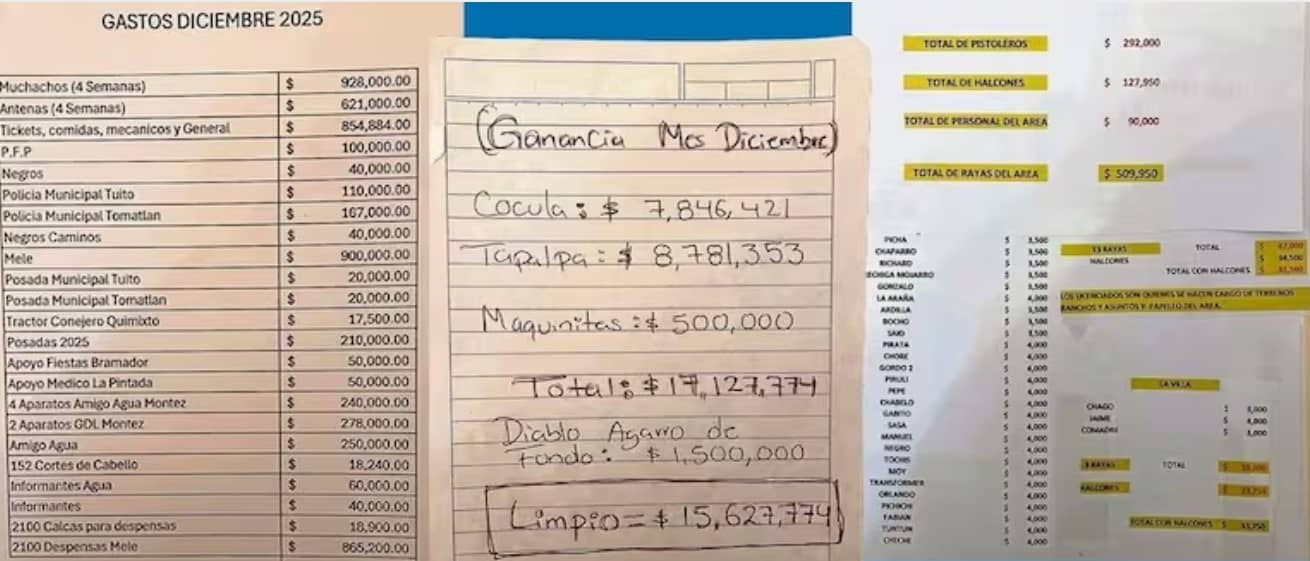 GASTOS DICIEMBRE 2025
Muchachos (4 Semanas) $ 928,000.00
Antenas (4 Semanas) $ 621,000.00
Tickets, comidas, mecanicos y General $ 854,884.00
P.F.P $ 100,000.00
Negros $ 40,000.00
Policia Municipal Tuito $ 110,000.00
Policia Municipal Tomatlan $ 167,000.00
Negros Caminos $ 40,000.00
Mele $ 900,000.00
Posada Municipal Tuito $ 20,000.00
Posada Municipal Tomatlan $ 20,000.00
Tractor Conejero Quimixto $ 17,500.00
Posadas 2025 $ 210,000.00
Apoyo Fiestas Bramador $ 50,000.00
Apoyo Medico La Pintada $ 50,000.00
4 Aparatos Amigo Agua Montez $ 240,000.00
2 Aparatos GDL Montez $ 278,000.00
Amigo Agua $ 250,000.00
152 Cortes de Cabello $ 18,240.00
Informantes Agua $ 60,000.00
Informantes $ 40,000.00
2100 Calcas para despensas $ 18,900.00
2100 Despensas Mele $ 865,200.00
(Ganancia Mes Diciembre)
Cocula: $ 7,846,421
Tapalpa: $ 8,781,353
Maquinitas: $ 500,000
Total: $ 17,127,774
Diablo Agarro de
Fondo: $ 1,500,000
Limpio = $ 15,627,774
TOTAL DE PISTOLEROS $ 292,000
TOTAL DE HALCONES $ 127,950
TOTAL DE PERSONAL DEL AREA $ 90,000
TOTAL DE RAYAS DEL AREA $ 509,950
PICHA $ 3,500
CHAPARRO $ 3,500
RICHARD $ 3,500
$ 3,500
GONZALO $ 3,500
LA ARAÑA $ 4,000
ARDILLA $ 3,500
BOCHO $ 3,500
$ 3,500
PIRATA $ 4,000
CHORE $ 4,000
GORDO 2 $ 4,000
PIRULI $ 4,000
PEPE $ 4,000
CHABELO $ 4,000
$ 4,000
SASA $ 4,000
MANUEL $ 4,000
NEGRO $ 4,000
TOCHIS $ 4,000
MOY $ 4,000
TRANSFORMER $ 4,000
ORLANDO $ 4,000
PICHON $ 4,000
FABIAN $ 4,000
$ 4,000
$ 4,000
13 RAYAS TOTAL $ 47,000
HALCONES $ 34,500
TOTAL CON HALCONES $
LOS LICENCIADOS SON QUIENES SE HACEN CARGO DE TERRENOS
RANCHOS Y ASUNTOS Y PAPELEO DEL AREA.
LA VILLA
CHAGO $
JAIME $ 4,000
COMADRE $
3 RAYAS TOTAL $
HALCONES $
TOTAL CON HALCONES $